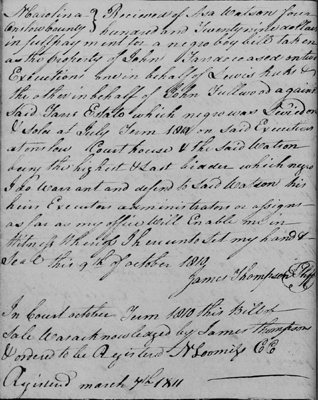 N Carolina } Recieved of Asa Watson four
Onslow County } hundred and Twenty nine dollars
in full payment for a negro boy taken
as the property of John deceased under
Executions one in behalf of Lewis &
the other in behalf of John Fullwood against
Said Estate which negro was
& Sold at July Term on said Execution
at onslow Court house & the said Watson
being the highest & Last bidder which negro
I do Warrant and defend to Said Watson his
heirs Executors administrators or assigns
as far as my office Will Enable me in
Witness Whereof I hereunto Set my hand &
Seal this 9th of october
James Thompson Shff
In Court october Term 1810 this Bill of
Sale Was acknowledged by James Thompson
& ordered to be Registerd N Loomis CC
Registerd march 7th 1811